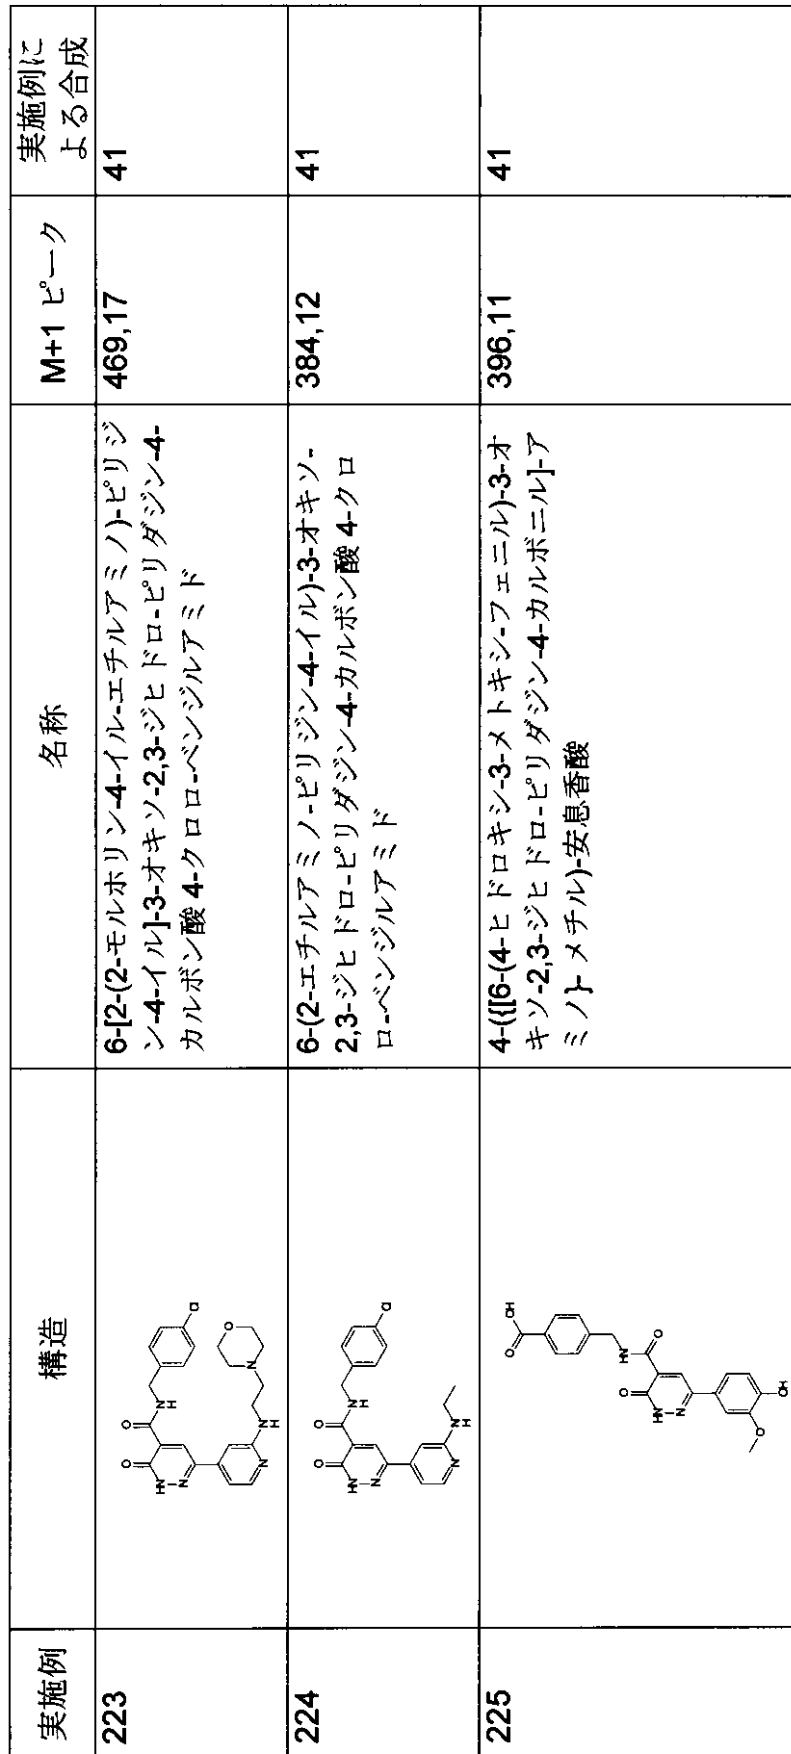 実施例
構造
名称
M+1 ピーク
実施例に
よる合成
223
O
O
N
H
HN
N
N
N
H
N
O
Cl
6-[2-(2-モルホリン-4-イル-エチルアミノ)-ピリジ
ン-4-イル]-3-オキソ-2,3-ジヒドロ-ピリダジン-4-
カルボン酸 4-クロロ-ベンジルアミド
469,17
41
224
O
O
N
H
HN
N
N
N
H
Cl
6-(2-エチルアミノ-ピリジン-4-イル)-3-オキソ-
2,3-ジヒドロ-ピリダジン-4-カルボン酸 4-クロ
ロ-ベンジルアミド
384,12
41
225
O
OH
HN
O
O
HN
N
O
OH
4-({[6-(4-ヒドロキシ-3-メトキシ-フェニル)-3-オ
キソ-2,3-ジヒドロ-ピリダジン-4-カルボニル]-ア
ミノ}-メチル)-安息香酸
396,11
41